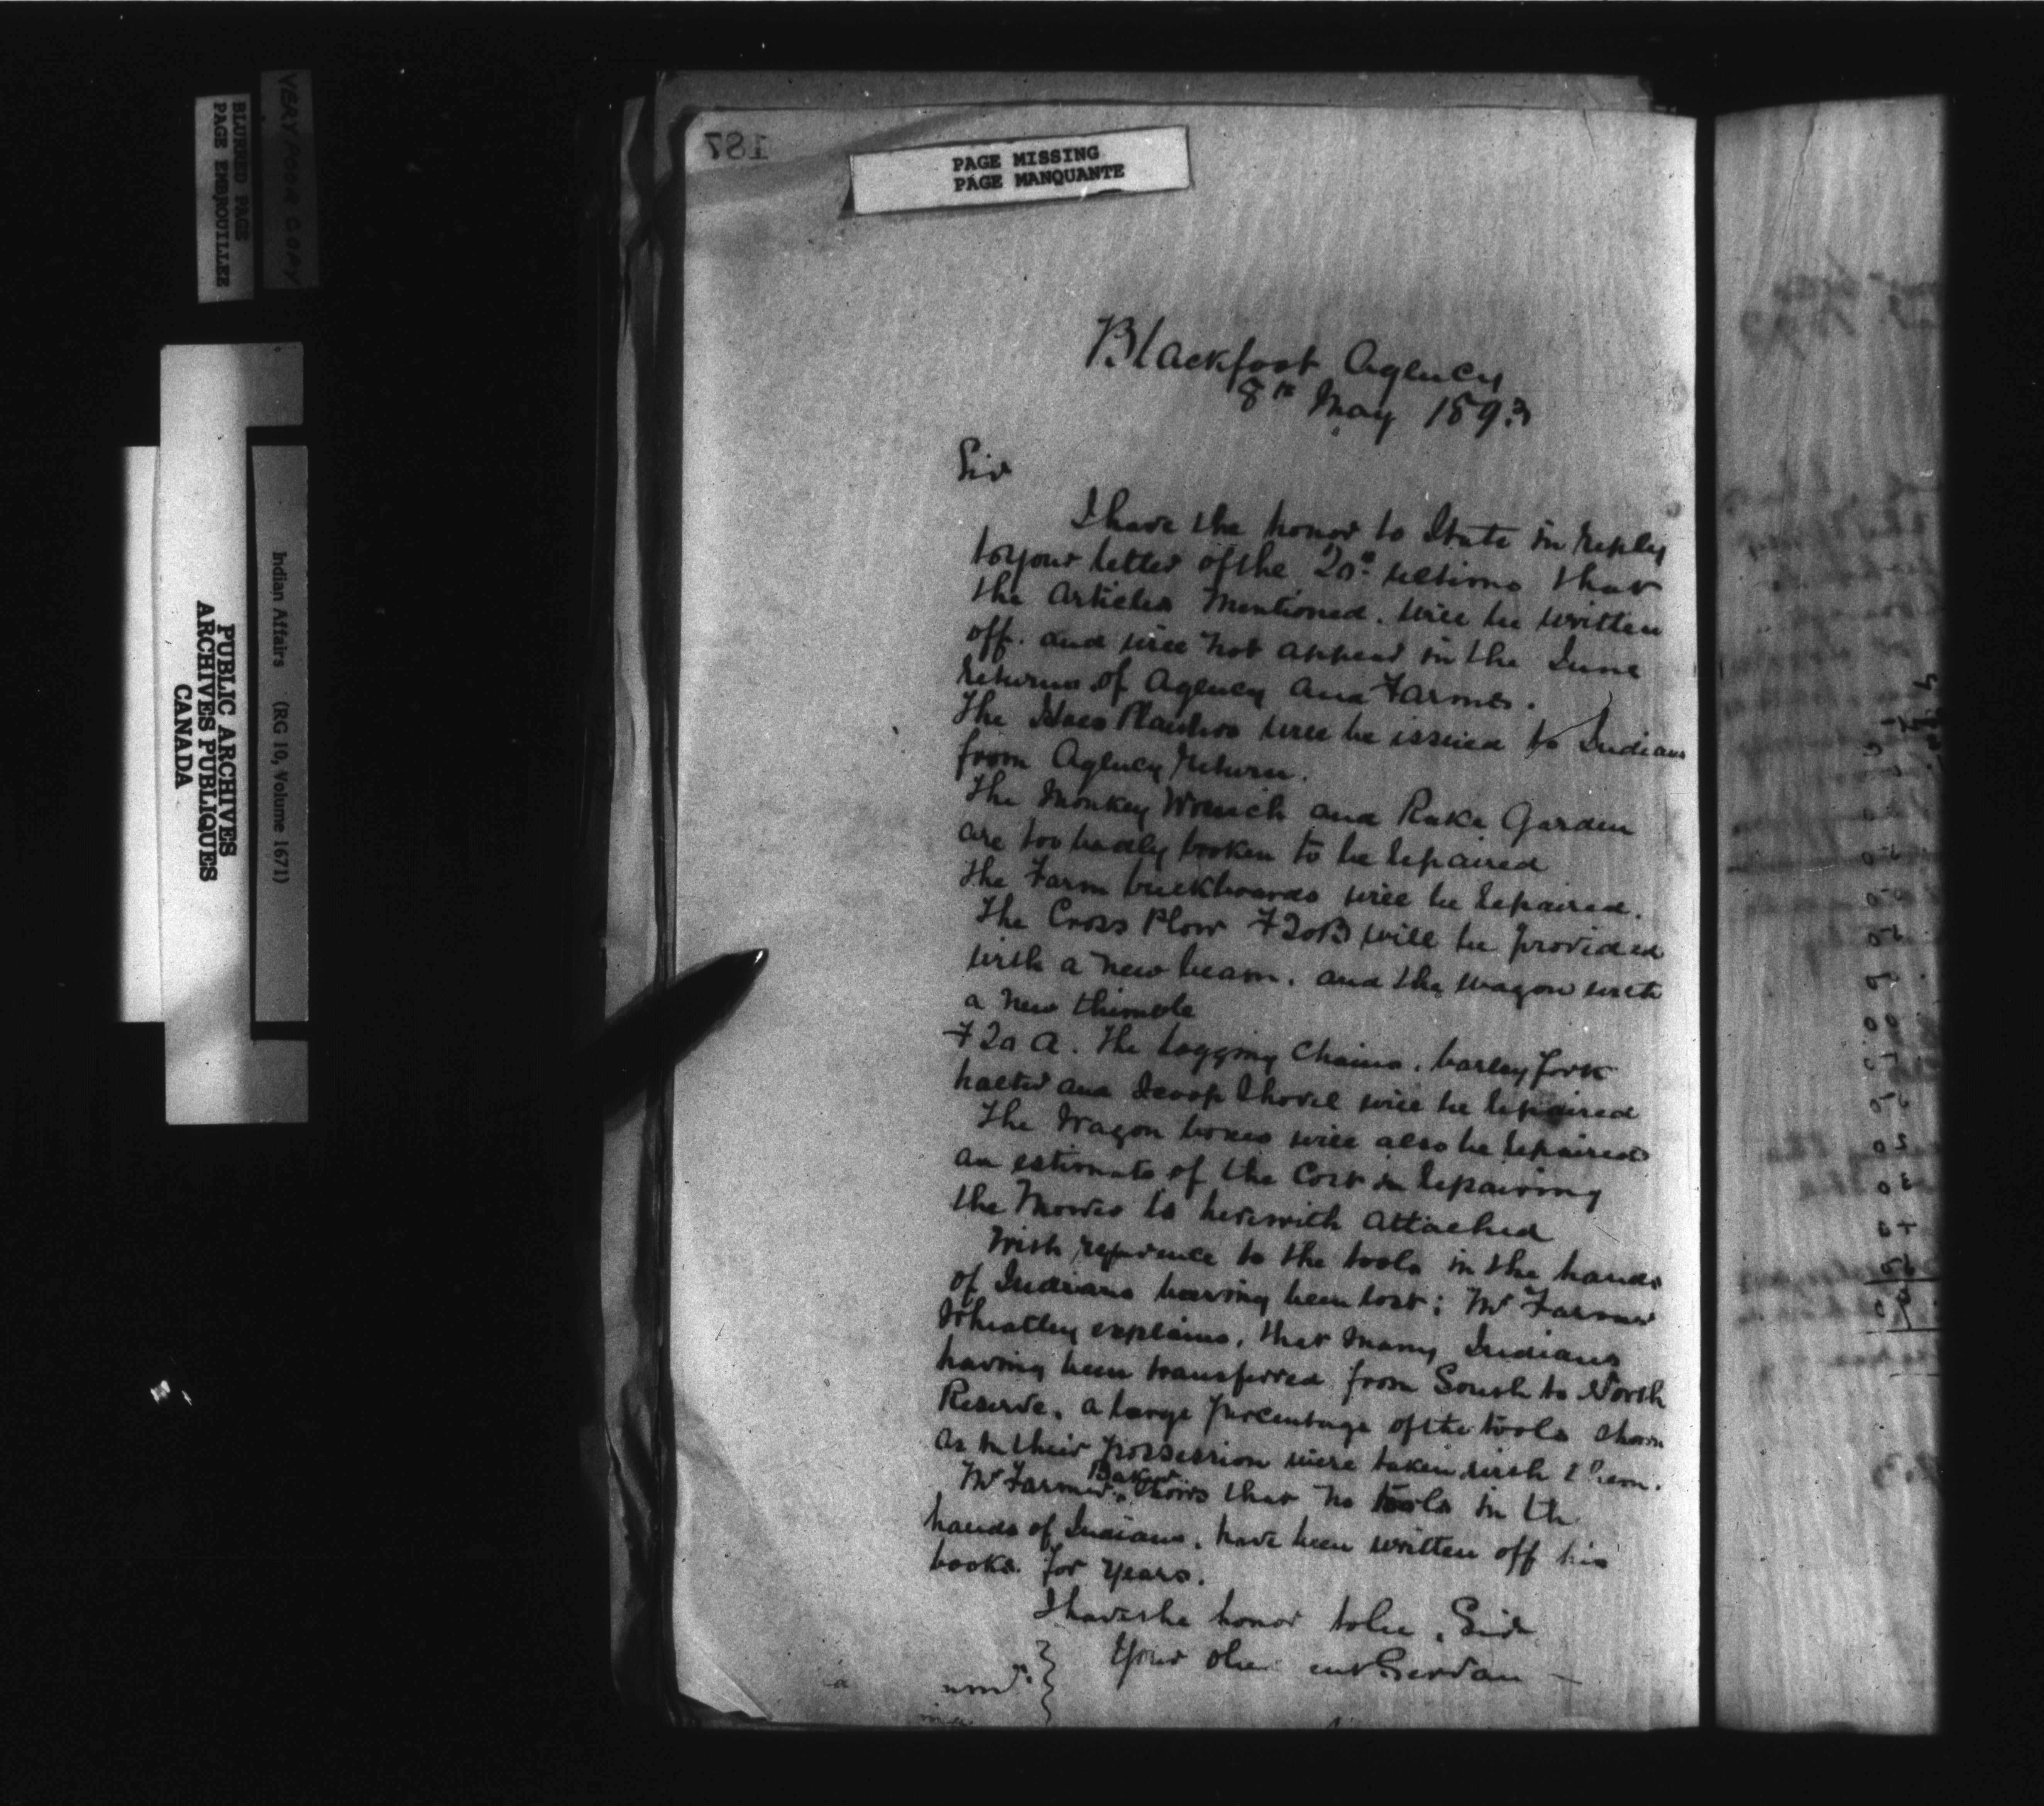 VERY POOR COPY
BLURRED PAGE
PAGE EMBROUILLEE
PUBLIC ARCHIVES
ARCHIVES PUBLIQUES
CANADA
Indian Affairs (RG 10, Volume 1671)
187
PAGE MISSING
PAGE MANQUANTE
Blackfoot Agency
8th May 1893
Sir
I have the honor to State in reply
to your letter of the 20th ultimo that
the Articles Mentioned. will be written
off. and will not appear in the June
returns of Agency and Farms.
The Hoes Planters will be issued to Indians
from Agency return.
The Monkey Wrench and Rake Garden
are too badly broken to be repaired
The Farm buckboards will be repaired.
The Cross Plow F20B will be provided
with a new beam. and the wagon with
a new thimble
F20A. The Logging Chains, barley fork
halter and Scoop Shovel will be repaired
The Wagon boxes will also be repaired
an estimate of the Cost in repairing
the Mower is herewith attached
With reference to the tools in the hands
of Indians having been lost; Mr Farmer
Wheatley explains, that many Indians
having been transferred from South to North
Reserve, a large percentage of the tools shown
as in their possession were taken with them.
Mr Farmer Baker shows that no tools in th
hands of Indians, have been written off his
books for years.
I have the honor to be, Sir
Your obe ent Servan